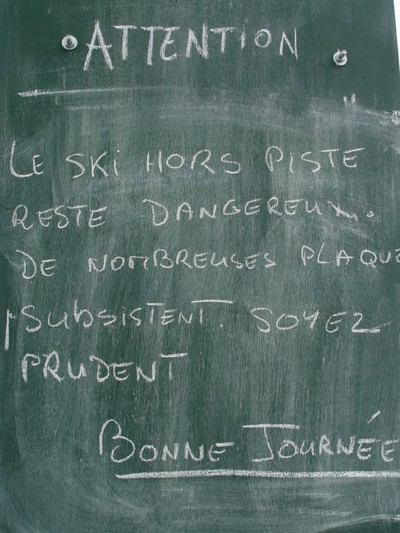 ATTENTION
LE SKI HORS PISTE
RESTE DANGEREUX.
DE NOMBREUSES PLAQUE
SUBSISTENT. SOYEZ
PRUDENT
BONNE JOURNÉE